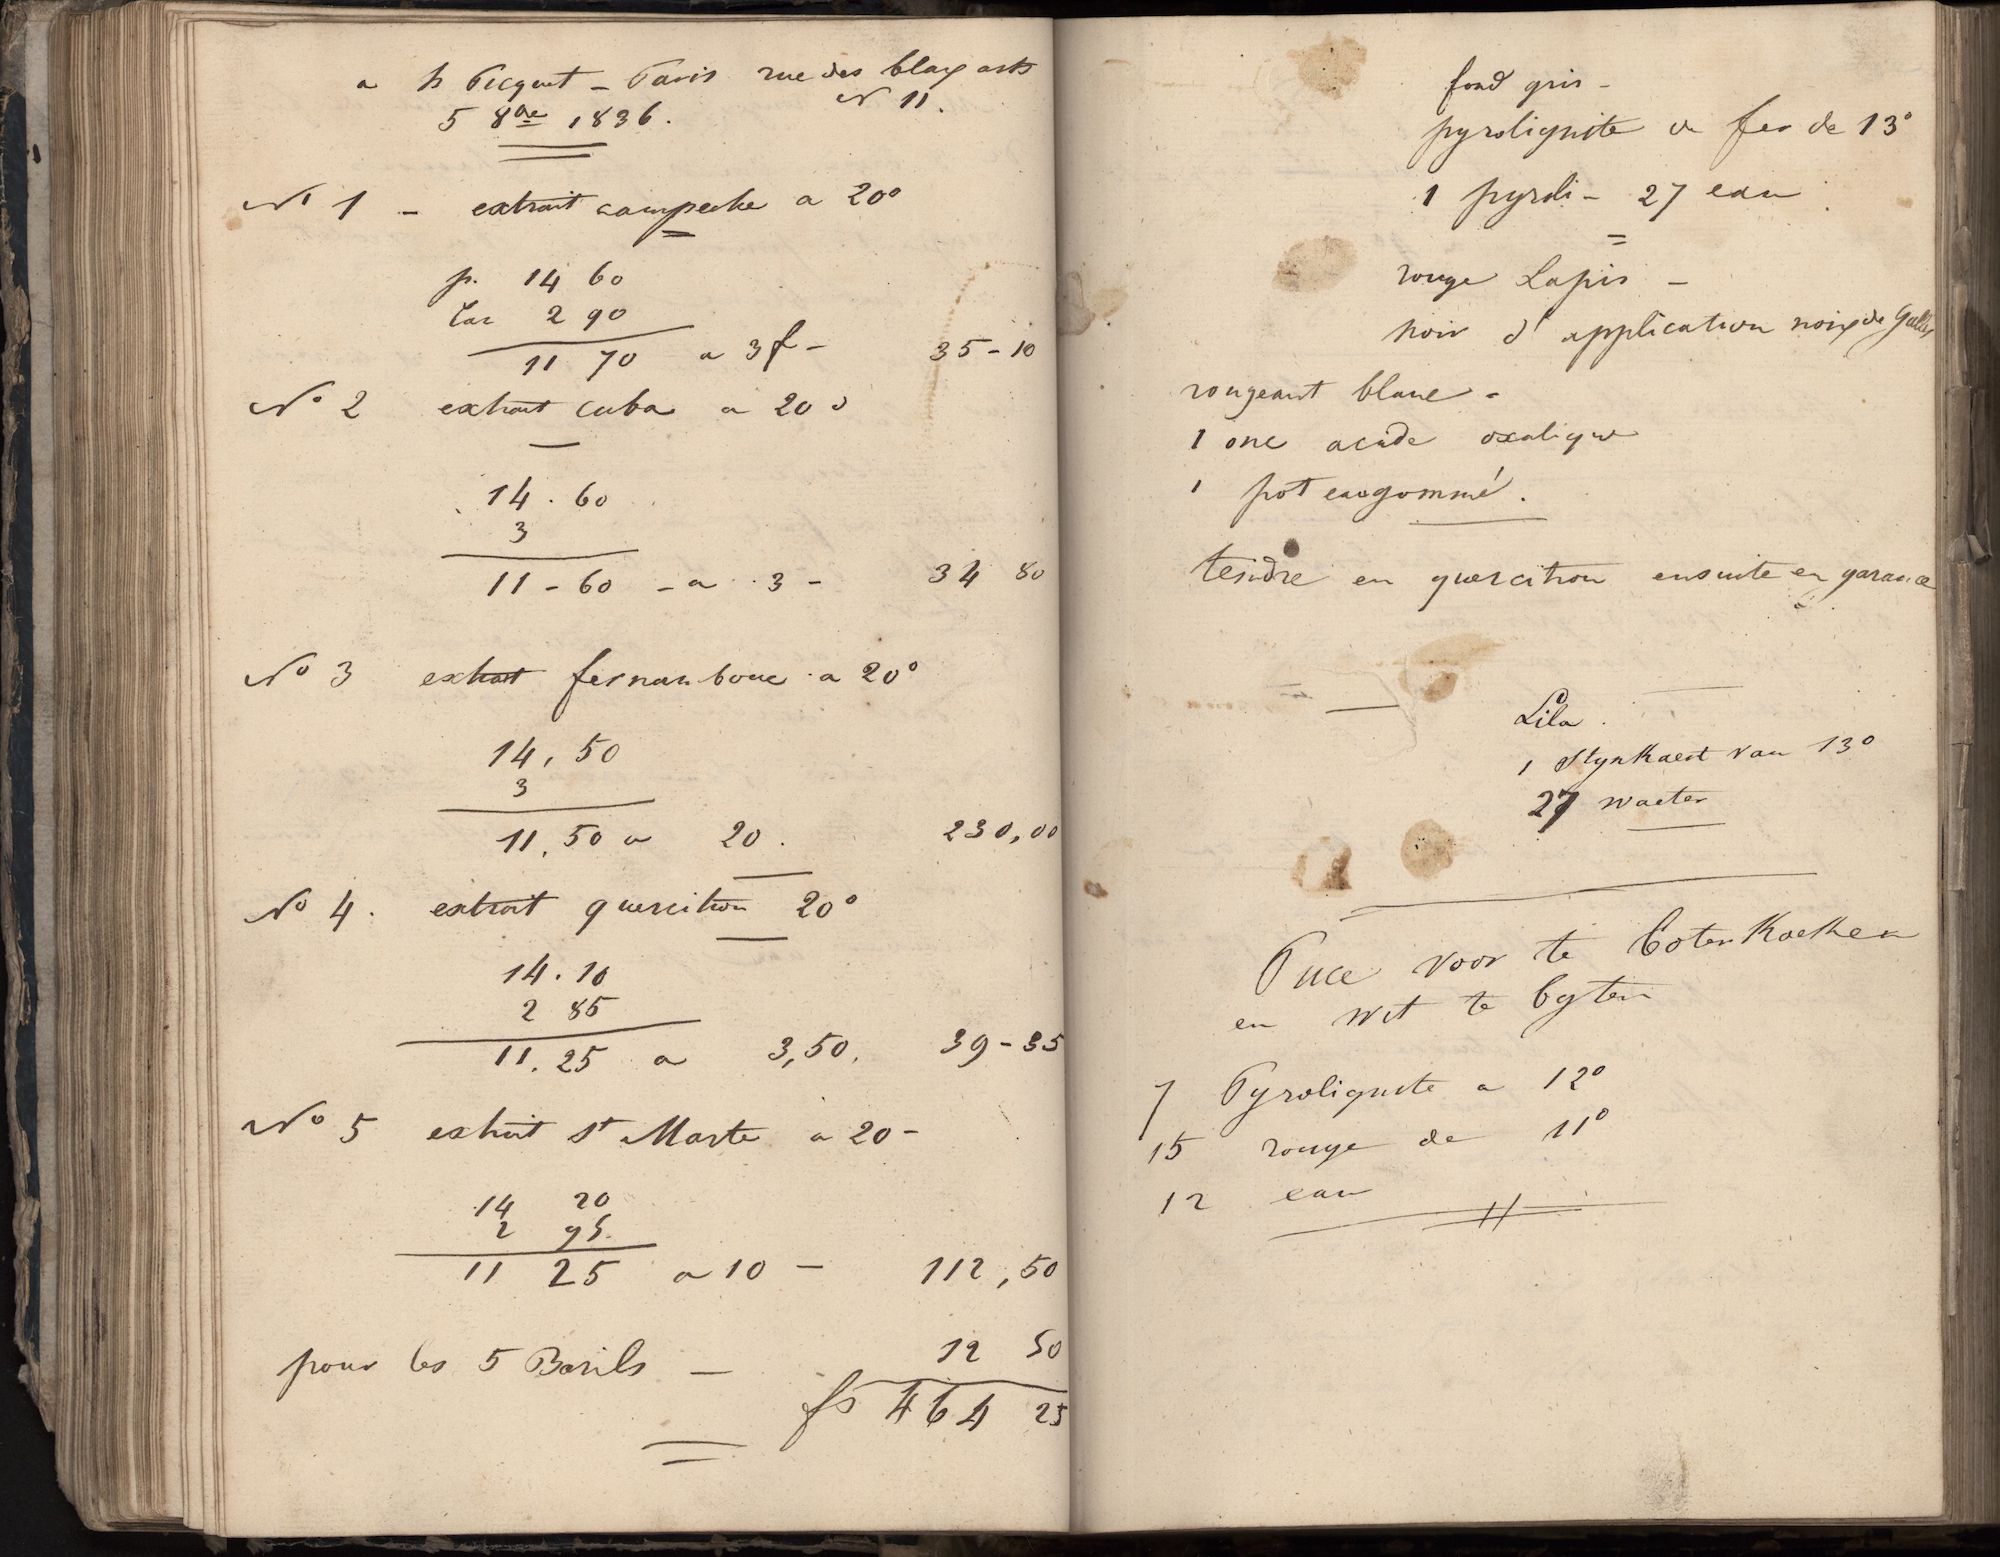 a h Picquet - Paris rue des blaux arts
N 11.
5 8bre 1836.
No 1 - extrait campeche a 20°
p. 14 60
tar 2 90
11 70 a 3 f - 35-10
No 2 extrait cuba a 20°
14.60
3
11-60 - a 3 - 34 80
No 3 extrait fernanbouc a 20°
14,50
3
11,50 a 20. 230,00
No 4. extrait quercitron 20°
14.10
2 85
11.25 a 3,50. 39-35
No 5 extrait st Marte a 20-
14 20
2 95.
11 25 a 10 - 112,50
pour les 5 Barils - 12 50
fs 464 25
fond gris -
pyrolignite de fer de 13°
1 pyroli - 27 eau
rouge Lapis -
noir d'application noix de Galles
rongeant blanc -
1 onc acide oxalique
1 pot eau gommé.
teindre en quercitron ensuite en garance
Lila.
1 Stynkaert van 13°
27 waeter
Puce voor te boterkoeken
en wit te byten
7 Pyrolignite a 12°
15 rouge de 11°
12 eau